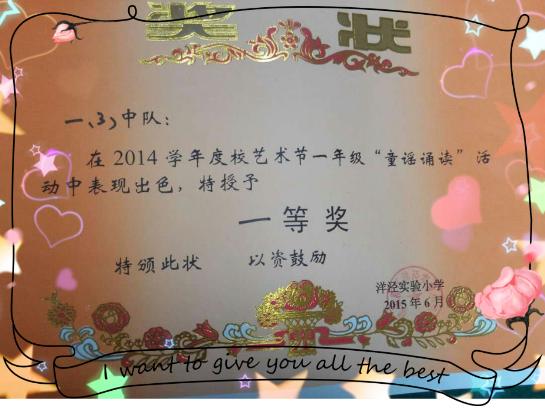 奖状
一、(3)中队：
在 2014 学年度校艺术节一年级“童谣诵读”活
动中表现出色，特授予
一等奖
特颁此状 以资鼓励
洋泾实验小学
2015 年 6 月
I want to give you all the best